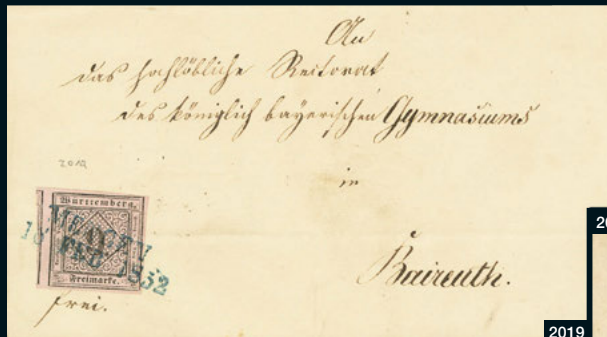 An
das hochlöbliche Rectorat
des königlich bayerischen Gymnasiums
in
Baireuth.
2019
Württemberg.
FEB 1852
Freimarke.
frei.
2019